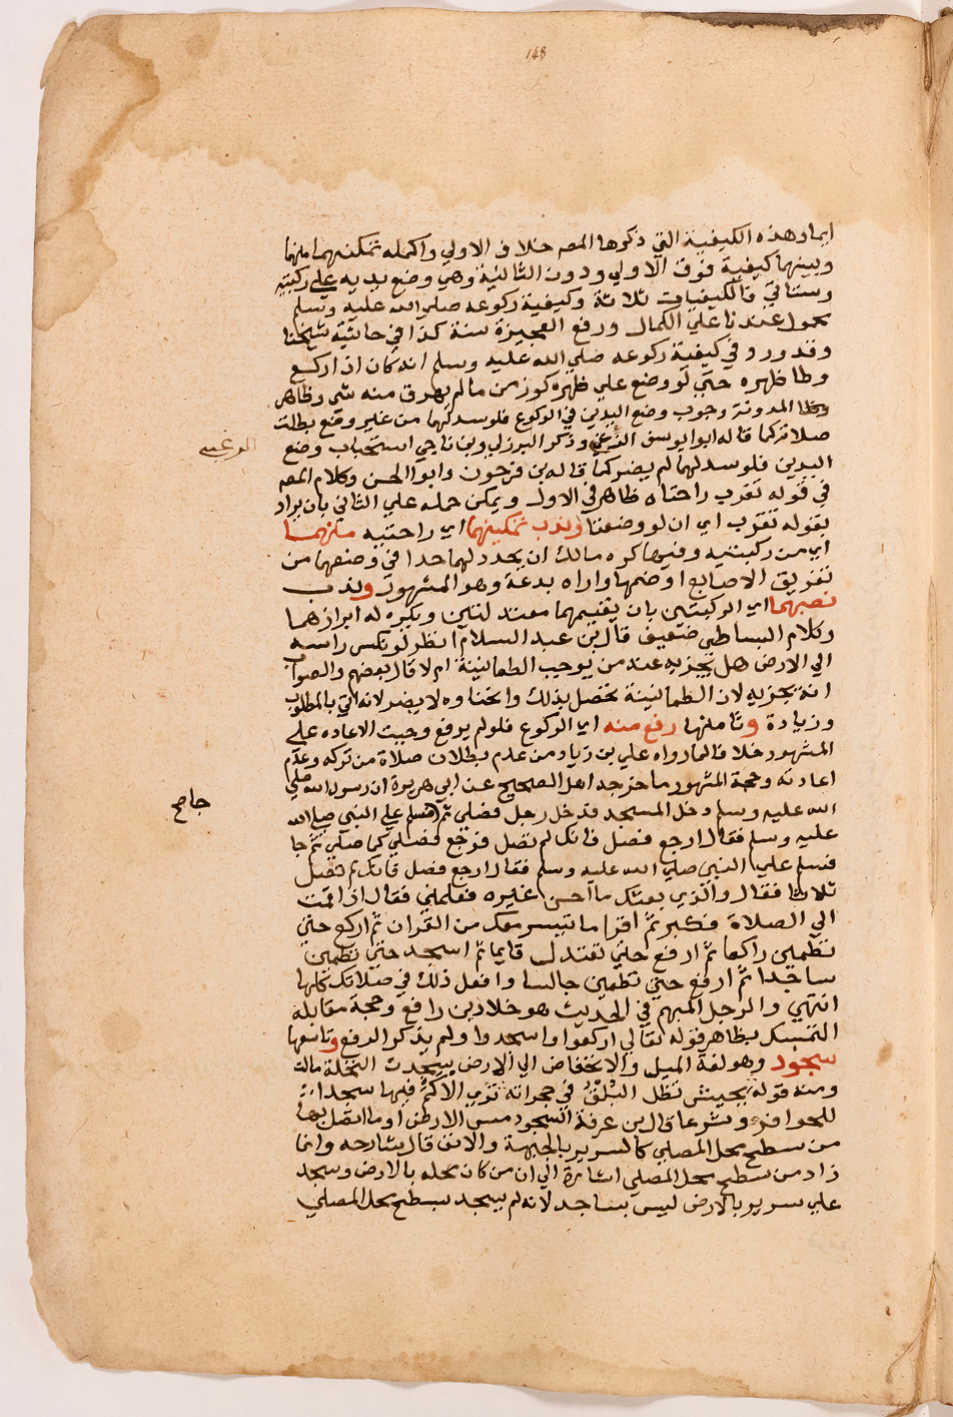 148
ايماء وهذه الكيفية التي ذكرها المصـ خلاف الاولي واكمله تمكنهما منهما
وبينهما كيفية فوق الاولي ودون الثانية وهي وضع يديه علي ركبتيه
وستاتي فالكيفيات ثلاثة وكيفية ركوعه صلي الله عليه وسلم
محمول عندنا علي الكمال ورفع العجيزة سنة كذا في حاشية شيخنا
وقد ورد في كيفية ركوعه صلي الله عليه وسلم انه كان اذا ركع
وطا ظهره حتي لو وضع علي ظهره كوز من ما لم يهرق منه شي وظاهر
المدونة وجوب وضع اليدين في الركوع فلو سدلهما من غير وضع بطلت
صلاته كما قاله ابوا يوسف الزغبي وذكر البرزلي وبن ناجي استحباب وضع
اليدين فلو سدلهما لم يضر كما قاله بن فرحون وابوا الحسن وكلام المصـ
في قوله تقرب راحتاه ظاهر في الاول ويمكن حمله علي الثاني بان يراد
بقوله تقرب اي ان لو وضعتا وندب تمكينهما اي راحتيه منهما
اي من ركبتيه وفيها كره مالك ان يحدد لهما حدا في وضعهما من
تفريق الاصابع او ضمها واراه بدعة وهو المشهور وندب
نصبهما اي الركبتين بان يقيمهما معتدلتين ويكره له ابرازهما
وكلام البساطي ضعيف قال بن عبد السلام انظر لو نكس راسه
الي الارض هل يجزيه عند من يوجب الطمانينة ام لا قال بعضهم والصواب
انه يجزيه لان الطمانينة تحصل بذلك وانحناوه لا يضر لانه اتي بالمطلوب
وزيادة وثامنها رفع منه اي الركوع فلو لم يرفع وجبت الاعاده علي
المشهور خلافا لما رواه علي بن زياد من عدم بطلان صلاة من تركه وعدم
اعادته وحجة المشهور ما خرجه اهل الصحيح عن ابي هريرة ان رسول الله صلي
الله عليه وسلم دخل المسجد فدخل رجل فصلي ثم فسلم علي النبي صلي الله
عليه وسلم فقال ارجع فصل فانك لم تصل فرجع فصلي كما صلي ثم جا
فسلم علي النبي صلي الله عليه وسلم فقال ارجع فصل فانك لم تصل
ثلاثا فقال والذي بعثك ما احسن غيره فعلمني فقال اذا قمت
الي الصلاة فكبر ثم اقرا ما تيسر معك من القران ثم اركع حتي
تطمين راكعا ثم ارفع حتي تعتدل قايما ثم اسجد حتي تطمين
ساجدا ثم ارفع حتي تطمين جالسا وافعل ذلك في صلاتك كلها
انتهي والرجل المبهم في الحديث هو خلاد بن رافع وحجة مقابله
التمسك بظاهر قوله تعالي اركعوا واسجدوا ولم يذكر الرفع وتاسعها
سجود وهو لغة الميل والانخفاض الي الارض يسجدت النخلة مالت
ومنه قوله بجيش تظل البلق في حجراته تري الاكم فيها سجدا
للحوافر وشرعا قال بن عرفة السجود مس الارض او ما اتصل بها
من سطح محل المصلي كالسرير بالجبهة والانف قال شارحه وانما
زاد من سطح محل المصلي اشارة الي ان من كان محله بالارض وسجد
علي سرير بالارض ليس بساجد لانه لم يسجد بسطح محل المصلي